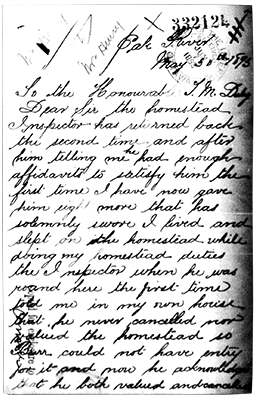 332124
Oak River
May 3 1895
To the Honourable T. M. Daly
Dear Sir the homestead
Inspector has returned back
the second time and after
him telling me he had enough
affidavits to satisfy him the
first time I have now gave
him eight more that has
solemnly swore I lived and
slept on the homestead while
doing my homestead duties
the Inspector when he was
round here the first time
told me in my own house
that he never cancelled nor
valued the homestead so
could not have entry
for it and now he acknowledg
that he both valued and cancelled